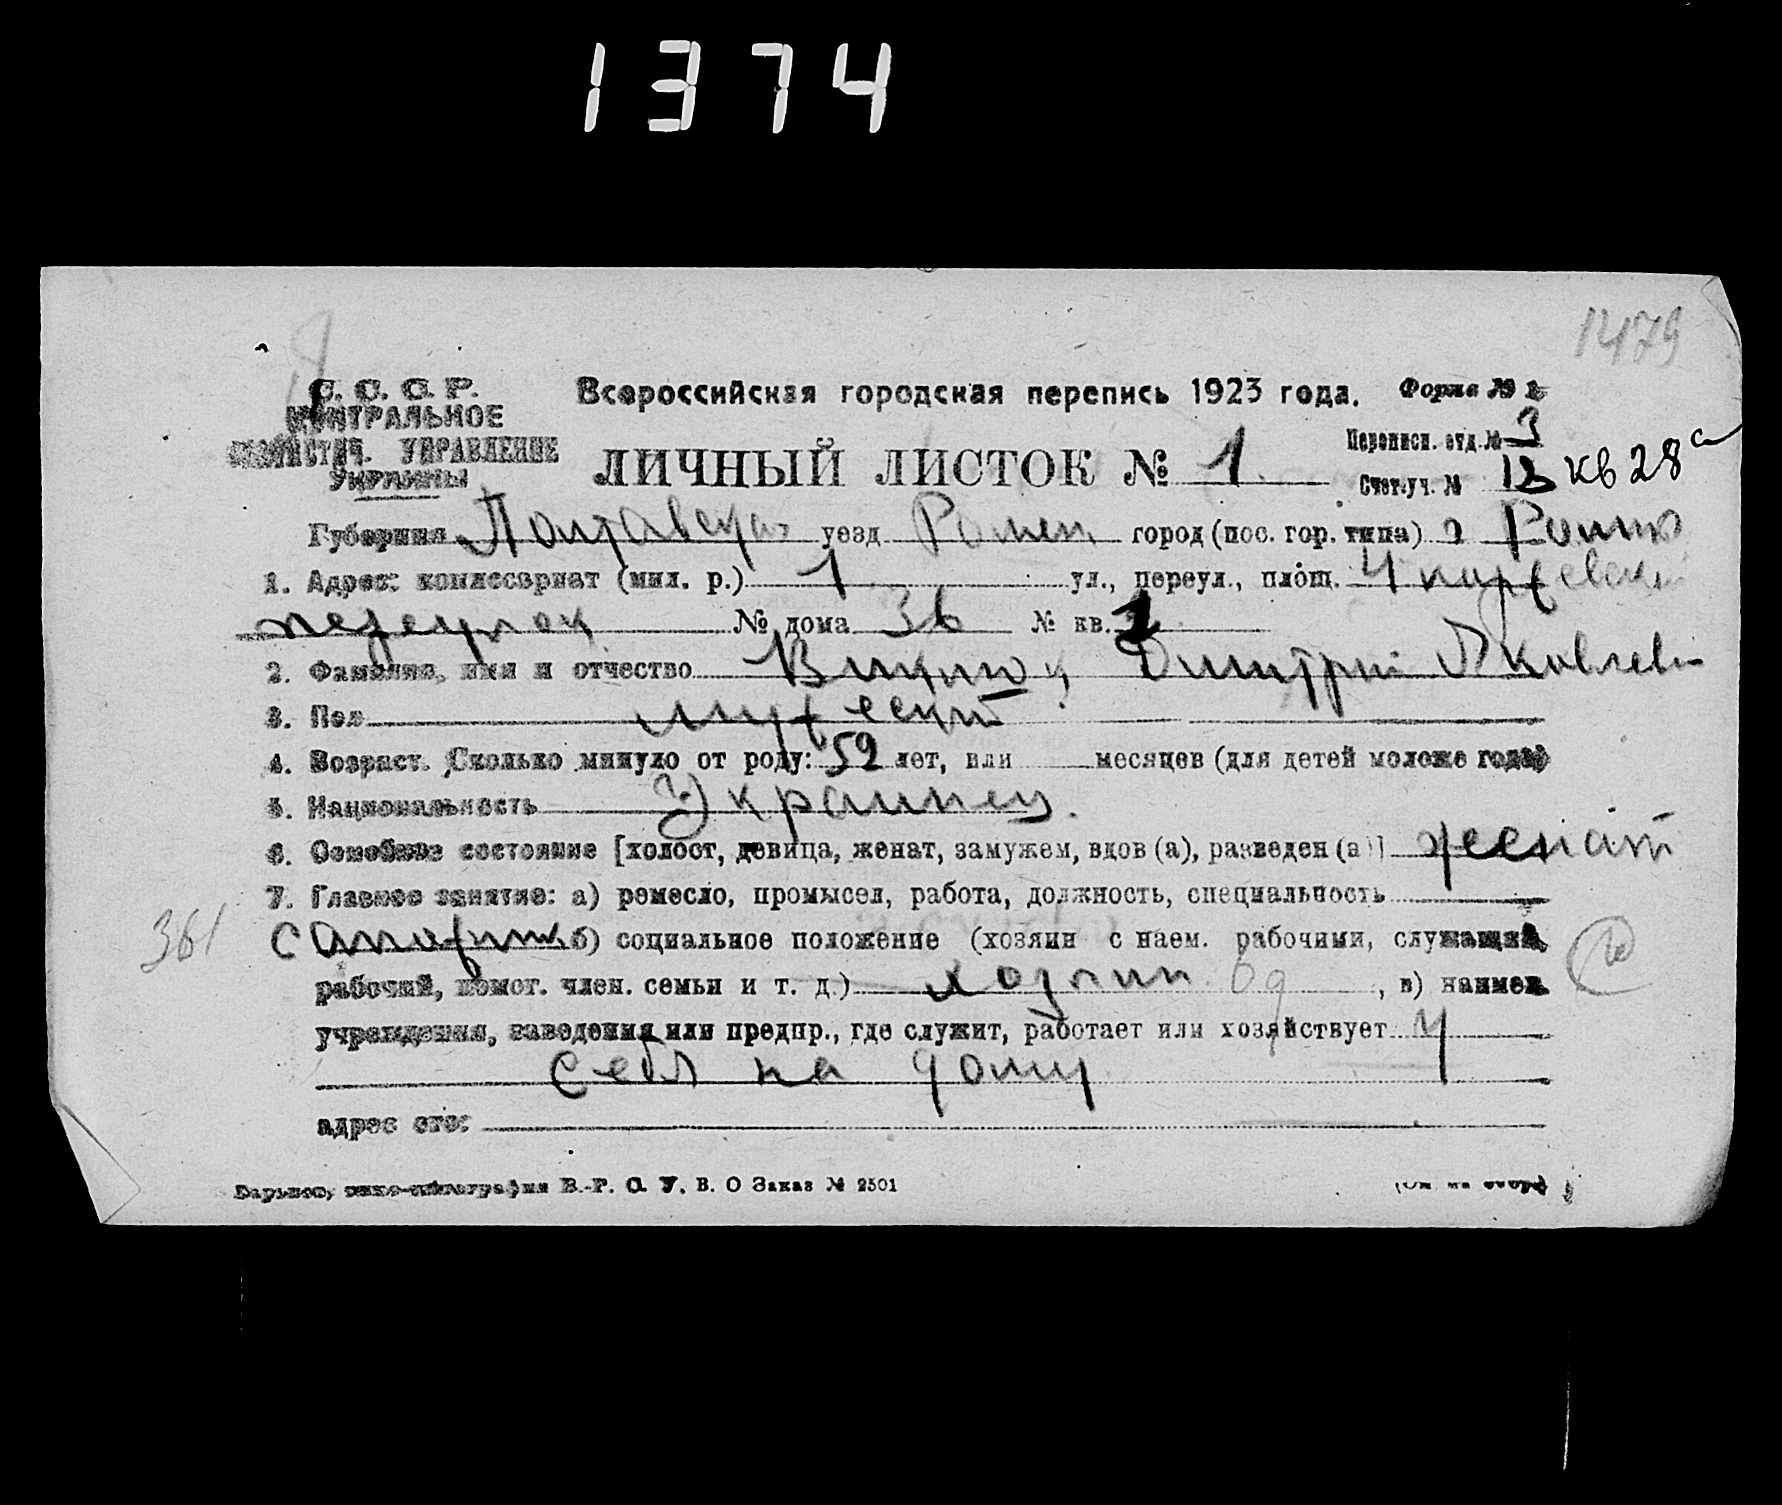 1374
1479
С. С. С. Р. Всероссийская городская перепись 1923 года. Форма №
ЦЕНТРАЛЬНОЕ
СТАТИСТИЧ. УПРАВЛЕНИЕ Переписн. отд. № 3
УКРАИНЫ ЛИЧНЫЙ ЛИСТОК № 1 Счет. уч. № 13 кв 28
Губерния Полтавская уезд Ромен город (пос. гор. типа) г Ромны
1. Адрес: комиссариат (мил. р.) 1 ул., переул., площ. 4
переулок № дома 36 № кв.
2. Фамилия, имя и отчество Дмитрий Яковлеви
3. Пол мужеский
4. Возраст. Сколько минуло от роду: 59 лет, или месяцев (для детей моложе года)
5. Национальность Украинец.
6. Семейное состояние [холост, девица, женат, замужем, вдов (а), разведен (а)] женат
7. Главное занятие: а) ремесло, промысел, работа, должность, специальность
361 сапожник б) социальное положение (хозяин с наем. рабочими, служащий,
рабочий, помог. член. семьи и т. д.) хозяин од , в) наимен.
учреждения, заведения или предпр., где служит, работает или хозяйствует у
себя на дому
адрес его:
Заказ № 2501